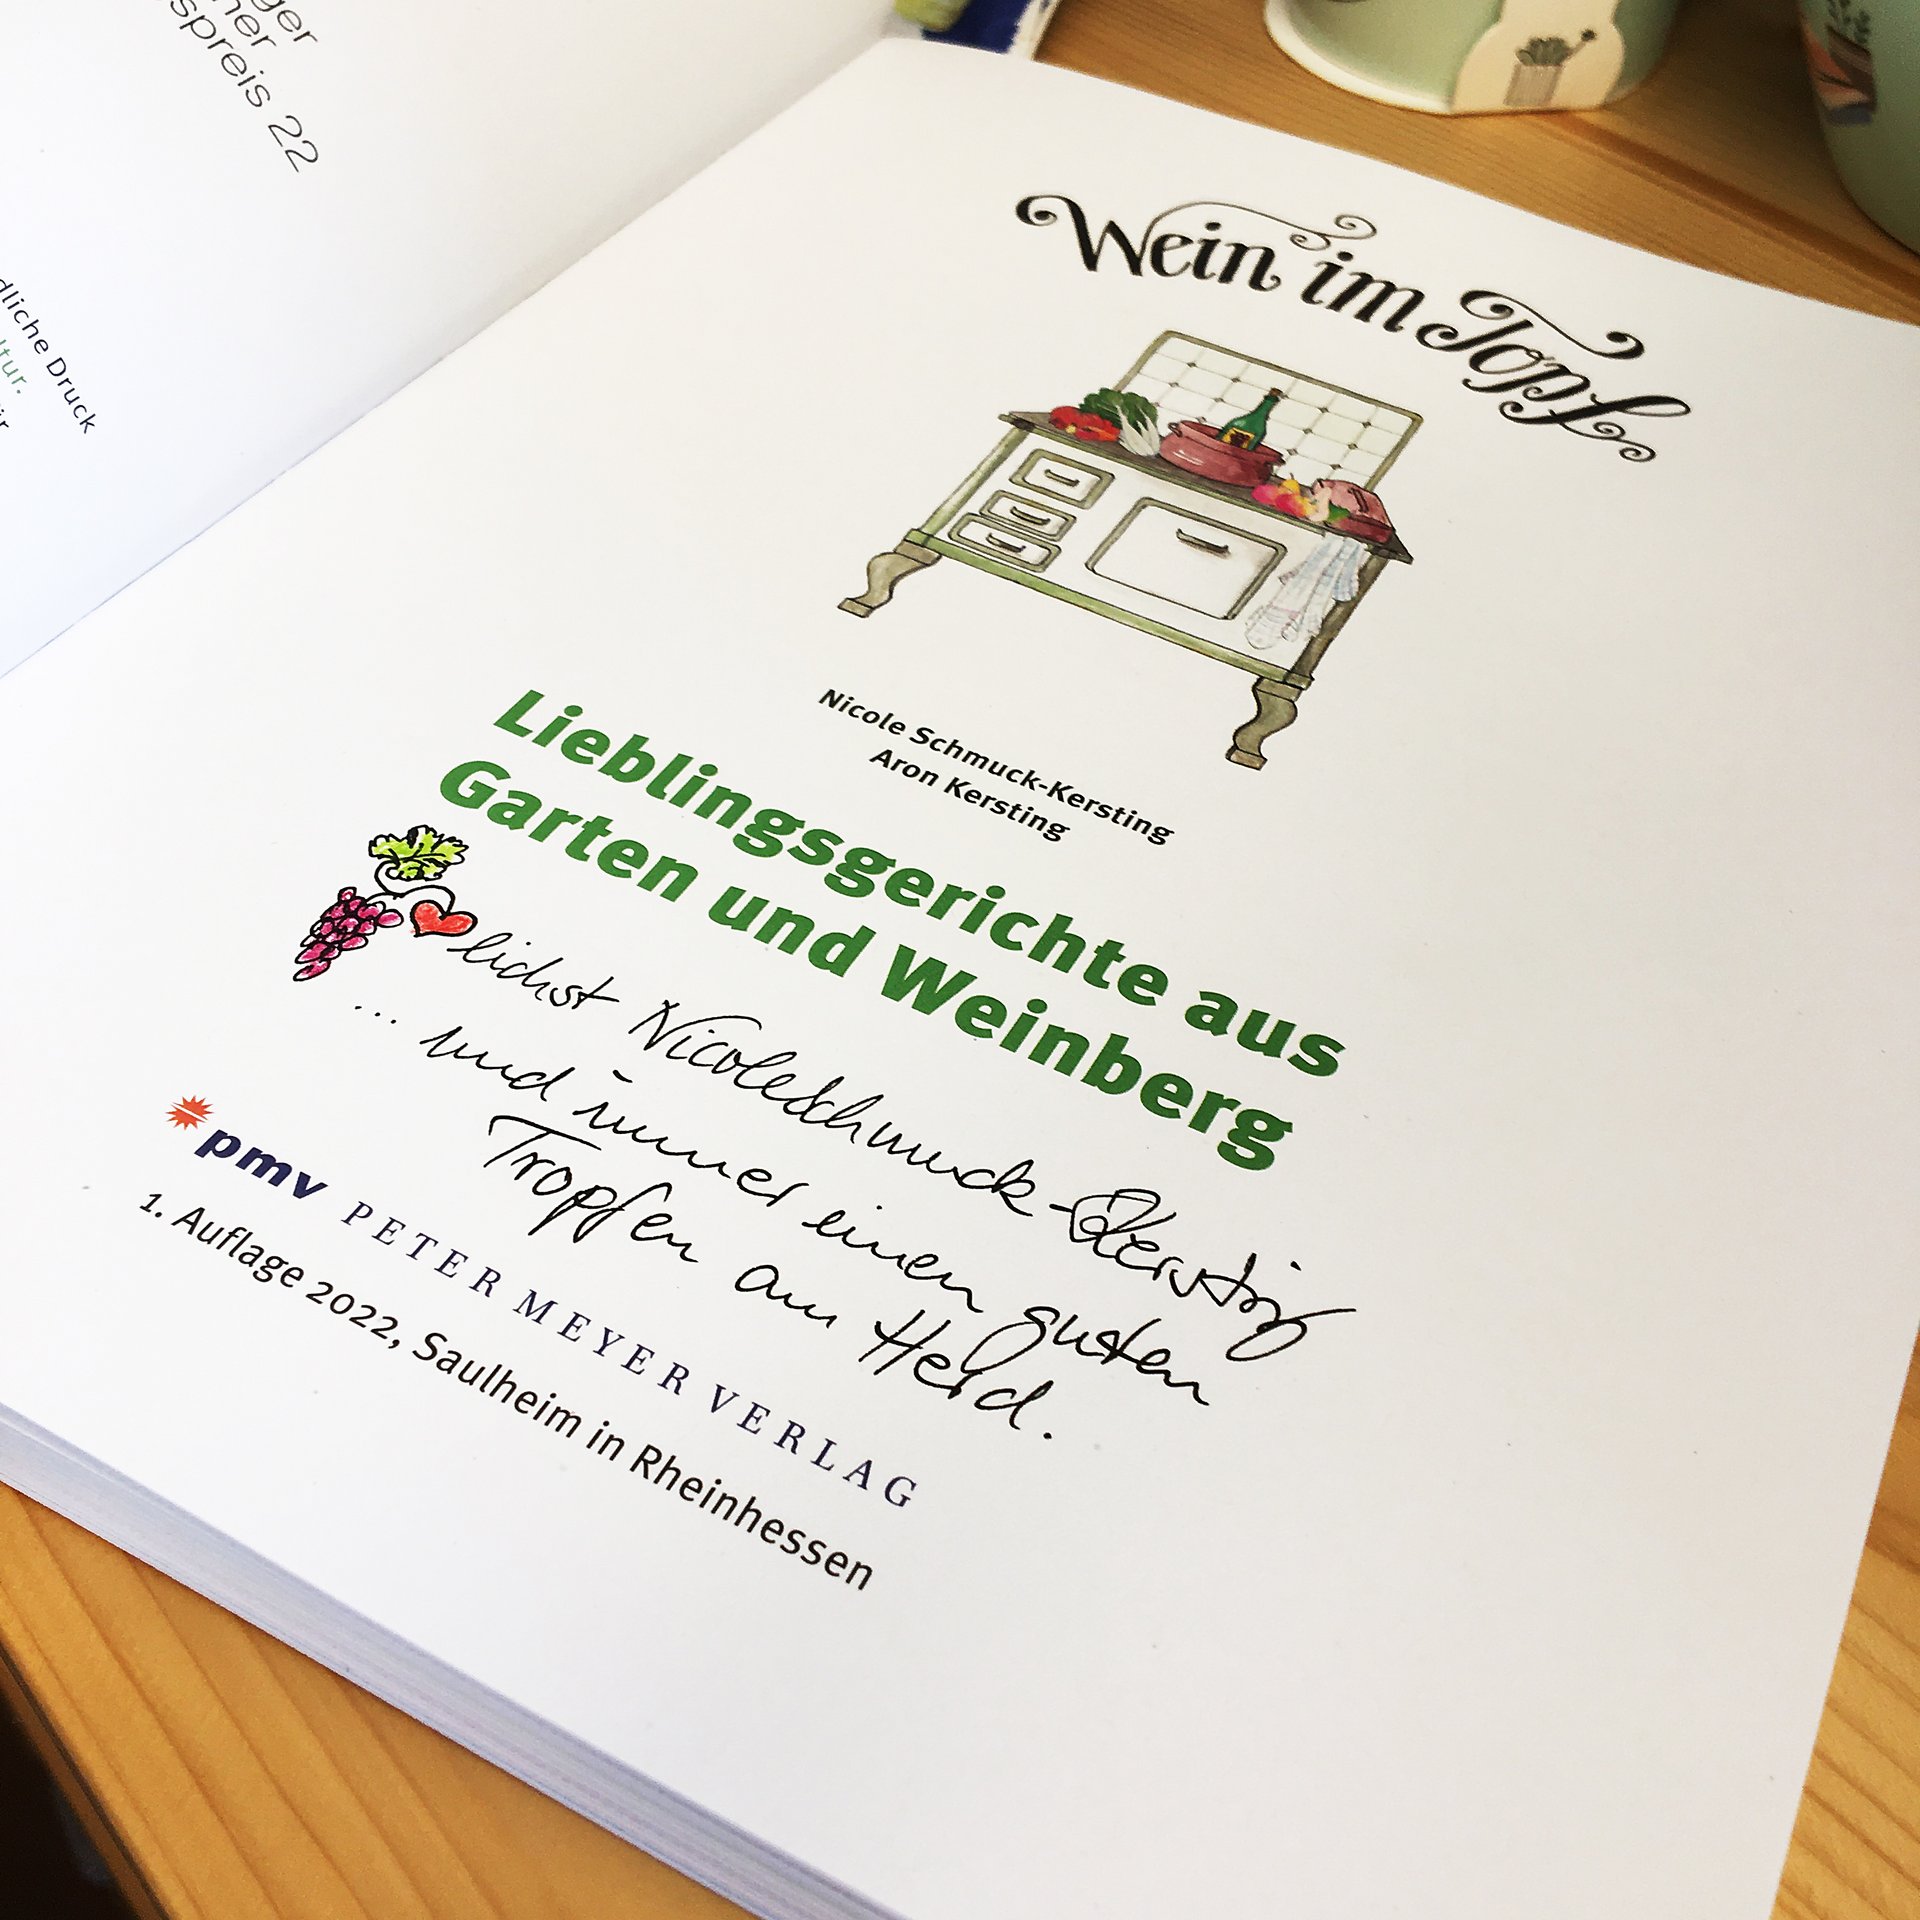 spreis 22
dliche Druck
Wein im Topf
Nicole Schmuck-Kersting
Aron Kersting
Lieblingsgerichte aus
Garten und Weinberg
lichst Nicole Schmuck-Kersting
... und immer einen guten
Tropfen am Herd.
pmv PETER MEYER VERLAG
1. Auflage 2022, Saulheim in Rheinhessen